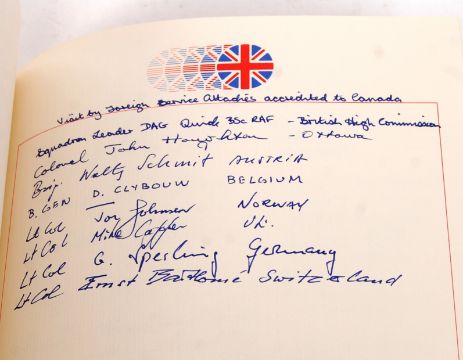 Visit by Foreign Service Attachés accredited to Canada
Squadron Leader DAG Quick BSc RAF - British High Commission
Colonel John Houghton - Ottawa
Brig. Wally Schmit AUSTRIA
B. GEN D. CLYBOUW BELGIUM
Lt Col Johnsen NORWAY
Lt Col Mike UK.
Lt Col G. Sperling Germany
Lt Col Ernst Switzerland